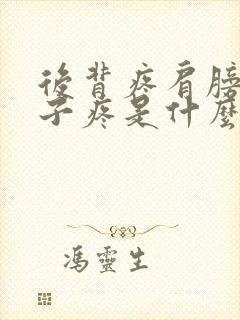 後背疼肩膀
子疼是什麼
馮靈生